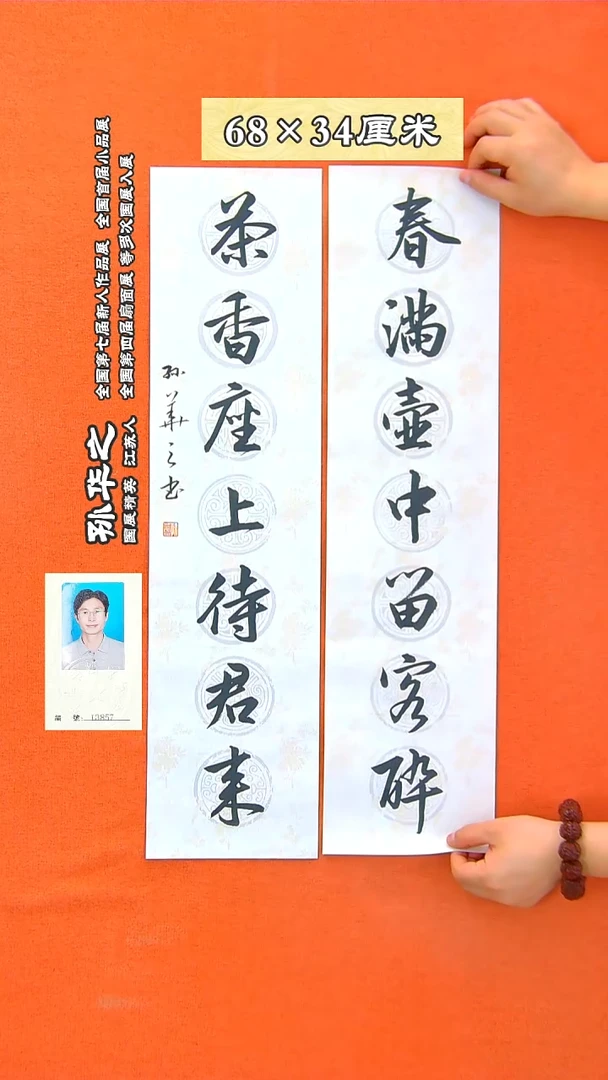 68×34厘米
春满壶中留客醉
茶香座上待君来
孙华之书
孙华之
国展精英 江苏人
全国第七届新人作品展 全国首届小品展
全国第四届扇面展 等多次国展入展
编 号: 13857